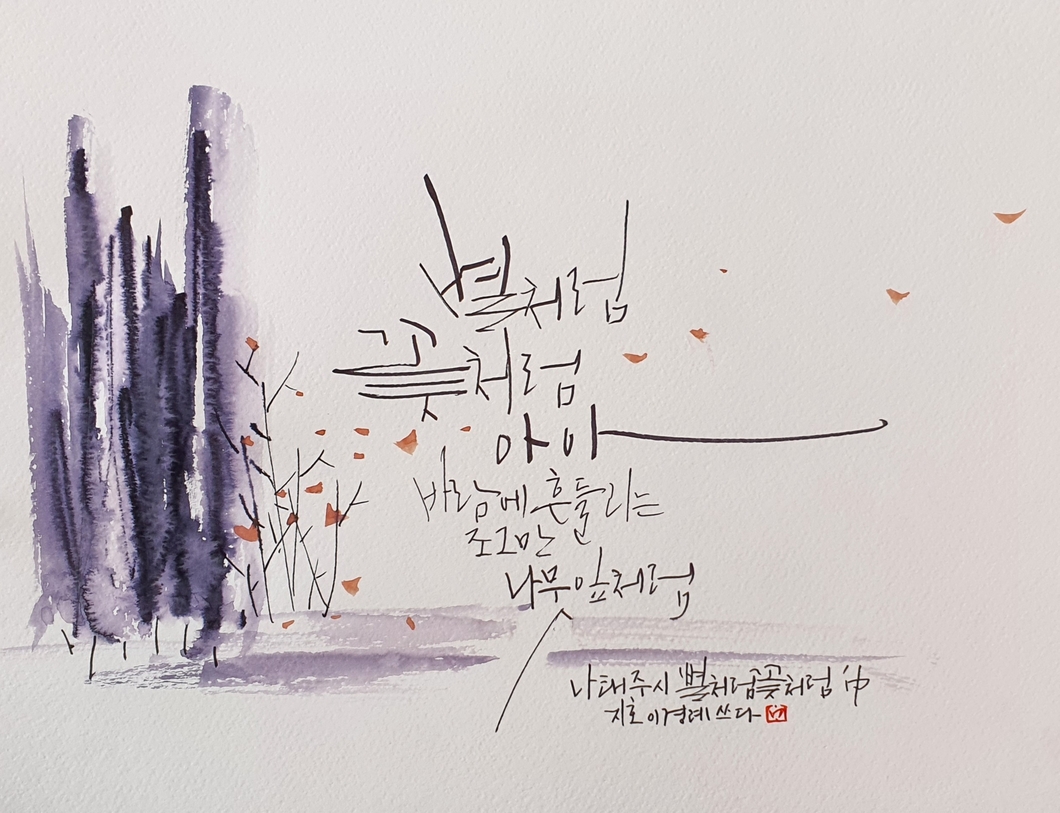 별처럼
꽃처럼
아이
바람에 흔들리는
조그만
나무 잎처럼
나태주시 별처럼 꽃처럼 中
지호 이경례 쓰다